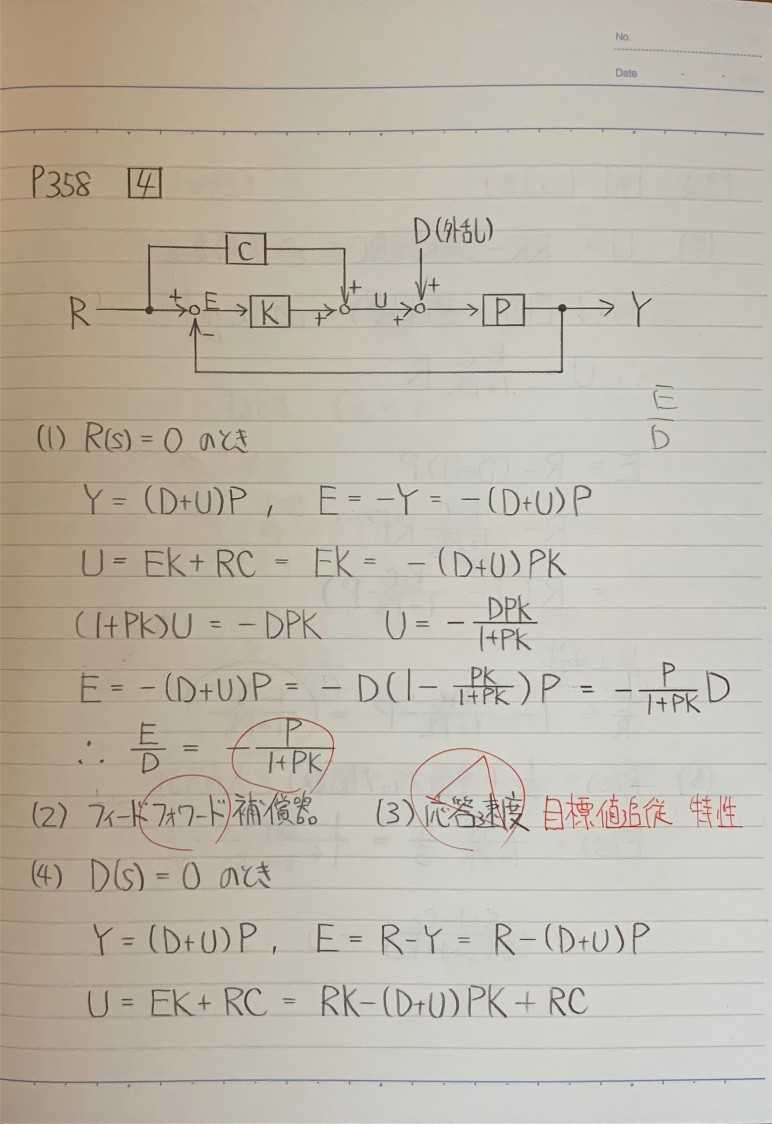 No.
Date
P358 4
C D(外乱)
R + E K + + U + + P Y
−
E/D
(1) R(s) = 0 のとき
Y = (D+U)P , E = −Y = −(D+U)P
U = EK + RC = EK = −(D+U)PK
(1+PK)U = −DPK U = − DPK/1+PK
E = −(D+U)P = − D(1− PK/1+PK)P = − P/1+PK D
∴ E/D = − P/1+PK
(2) フィードフォワード補償器。 (3) 応答速度 目標値追従 特性
(4) D(s) = 0 のとき
Y = (D+U)P , E = R−Y = R−(D+U)P
U = EK + RC = RK−(D+U)PK + RC